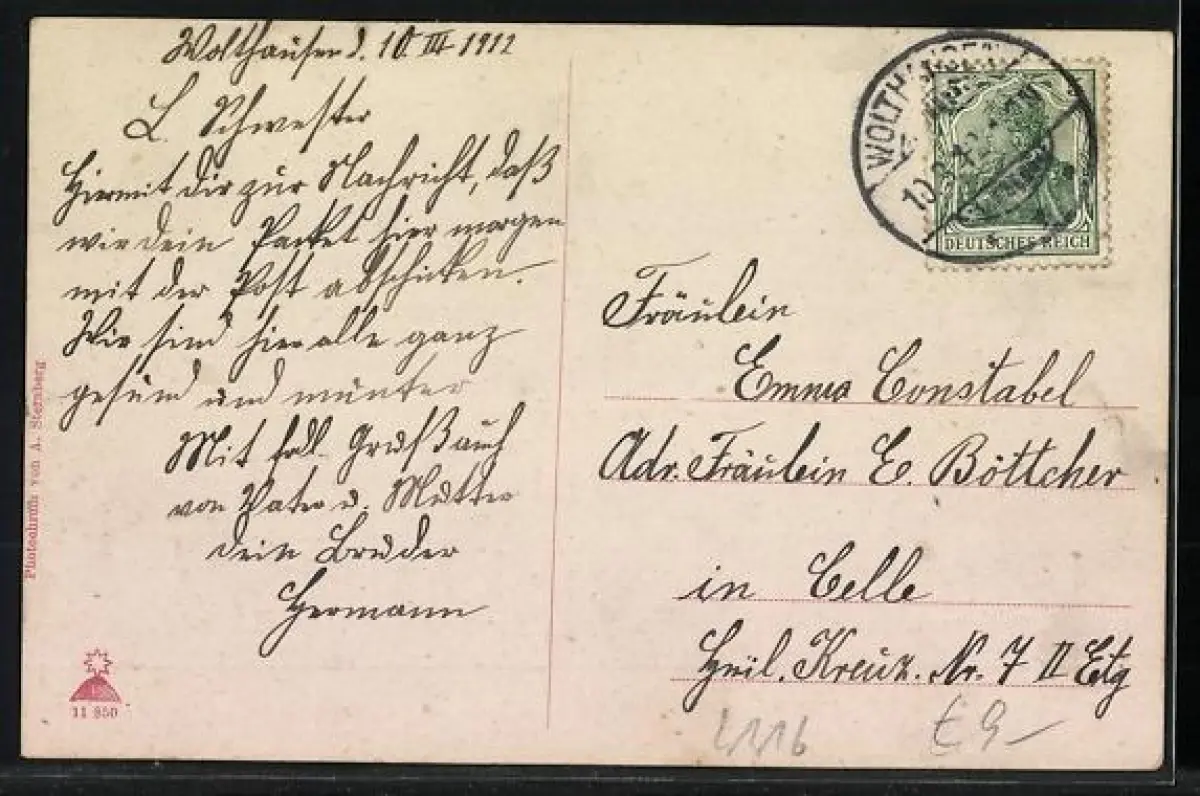 Wolthausen d. 10 III 1912
L. Schwester
Hiermit dir zur Nachricht, daß
wir dein Packet hier morgen
mit der Post abschicken.
Wir sind hier alle ganz
gesund und munter
Mit frdl. Gruß auch
von Vater u. Mutter
dein Bruder
Hermann
Photochrom von A. Sternberg
11 850
WOLTHAUSEN
DEUTSCHES REICH
Fräulein
Emma Constabel
Adr. Fräulein E. Böttcher
in Celle
Heil. Kreuz. Nr. 7 II Etg